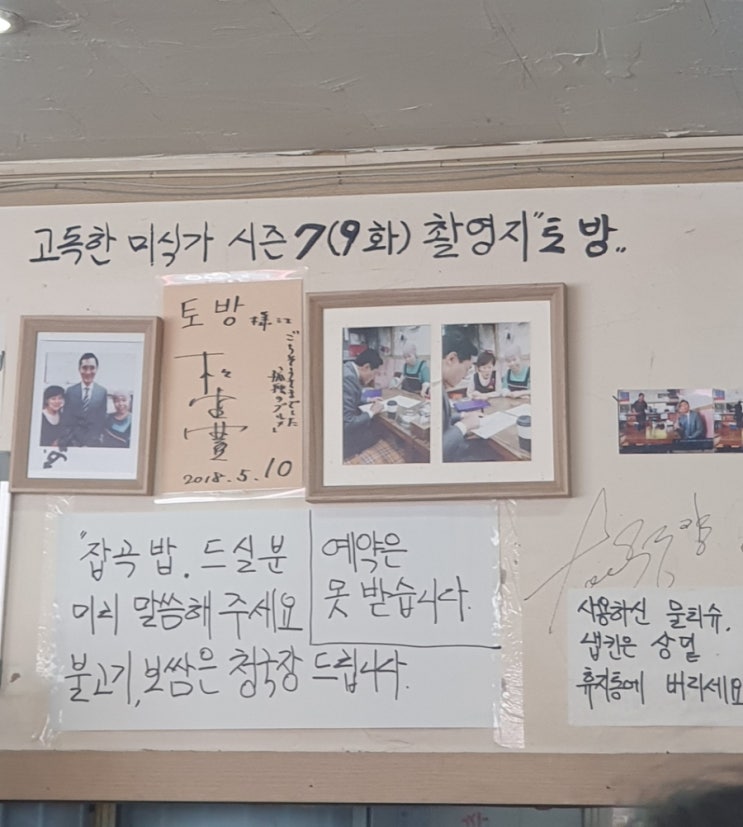 고독한 미식가 시즌7(9화) 촬영지"토방..
토방 様に
ごちそうさまでした
2018.5.10
"잡곡밥. 드실분
미리 말씀해 주세요
예약은
못 받습니다.
불고기,보쌈은 청국장 드립니다.
사용하신 물티슈.
냅킨은 상밑
휴지통에 버리세요